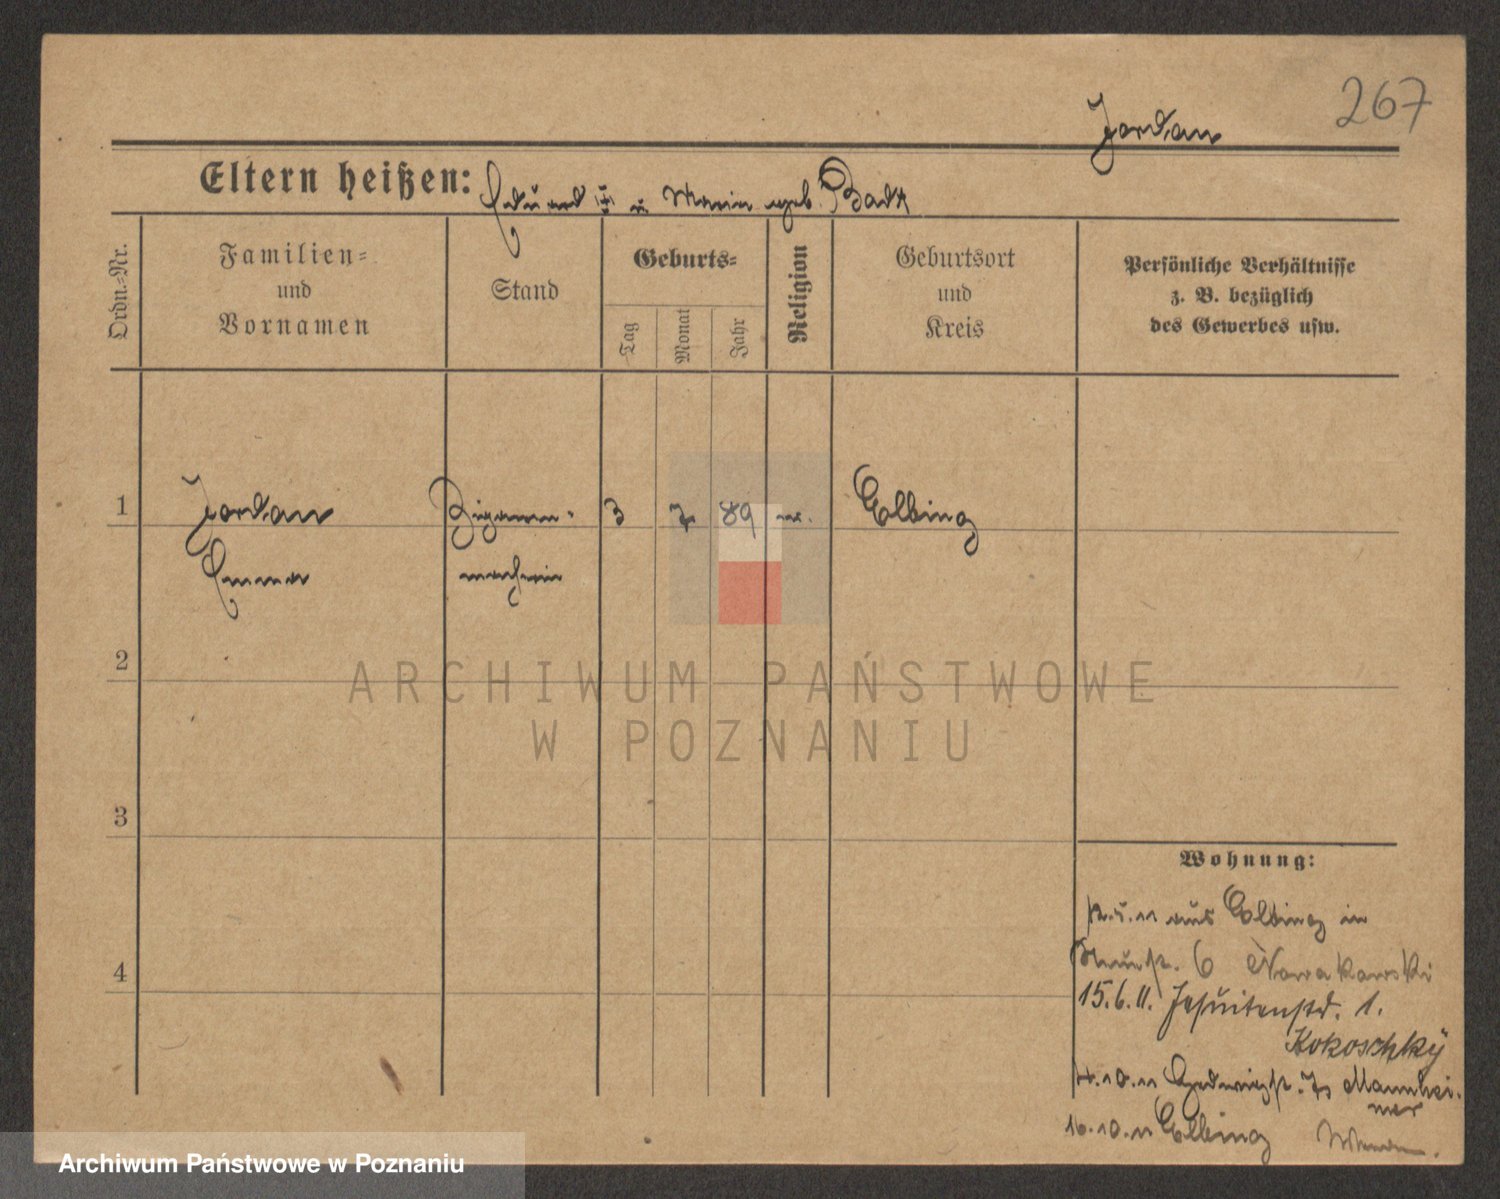 267
Jordan
Eltern heißen: Eduard u Maria geb. Badt
Ordn.-Nr.
Familien-
und
Vornamen
Stand
Geburts-
Tag
Monat
Jahr
Religion
Geburtsort
und
Kreis
Persönliche Verhältnisse
z. B. bezüglich
des Gewerbes usw.
1
Jordan
Zigarren-
3
7
89
Elbing
Emma
macherin
2
ARCHIWUM PAŃSTWOWE
W POZNANIU
3
Wohnung:
aus Elbing in
4
6 Nowakowski
15.6.11. Jesuitenstr. 1.
Kokoschky
4.10.11 Hedwigstr. Mannhei-
mer
10.11 Elbing
Archiwum Państwowe w Poznaniu